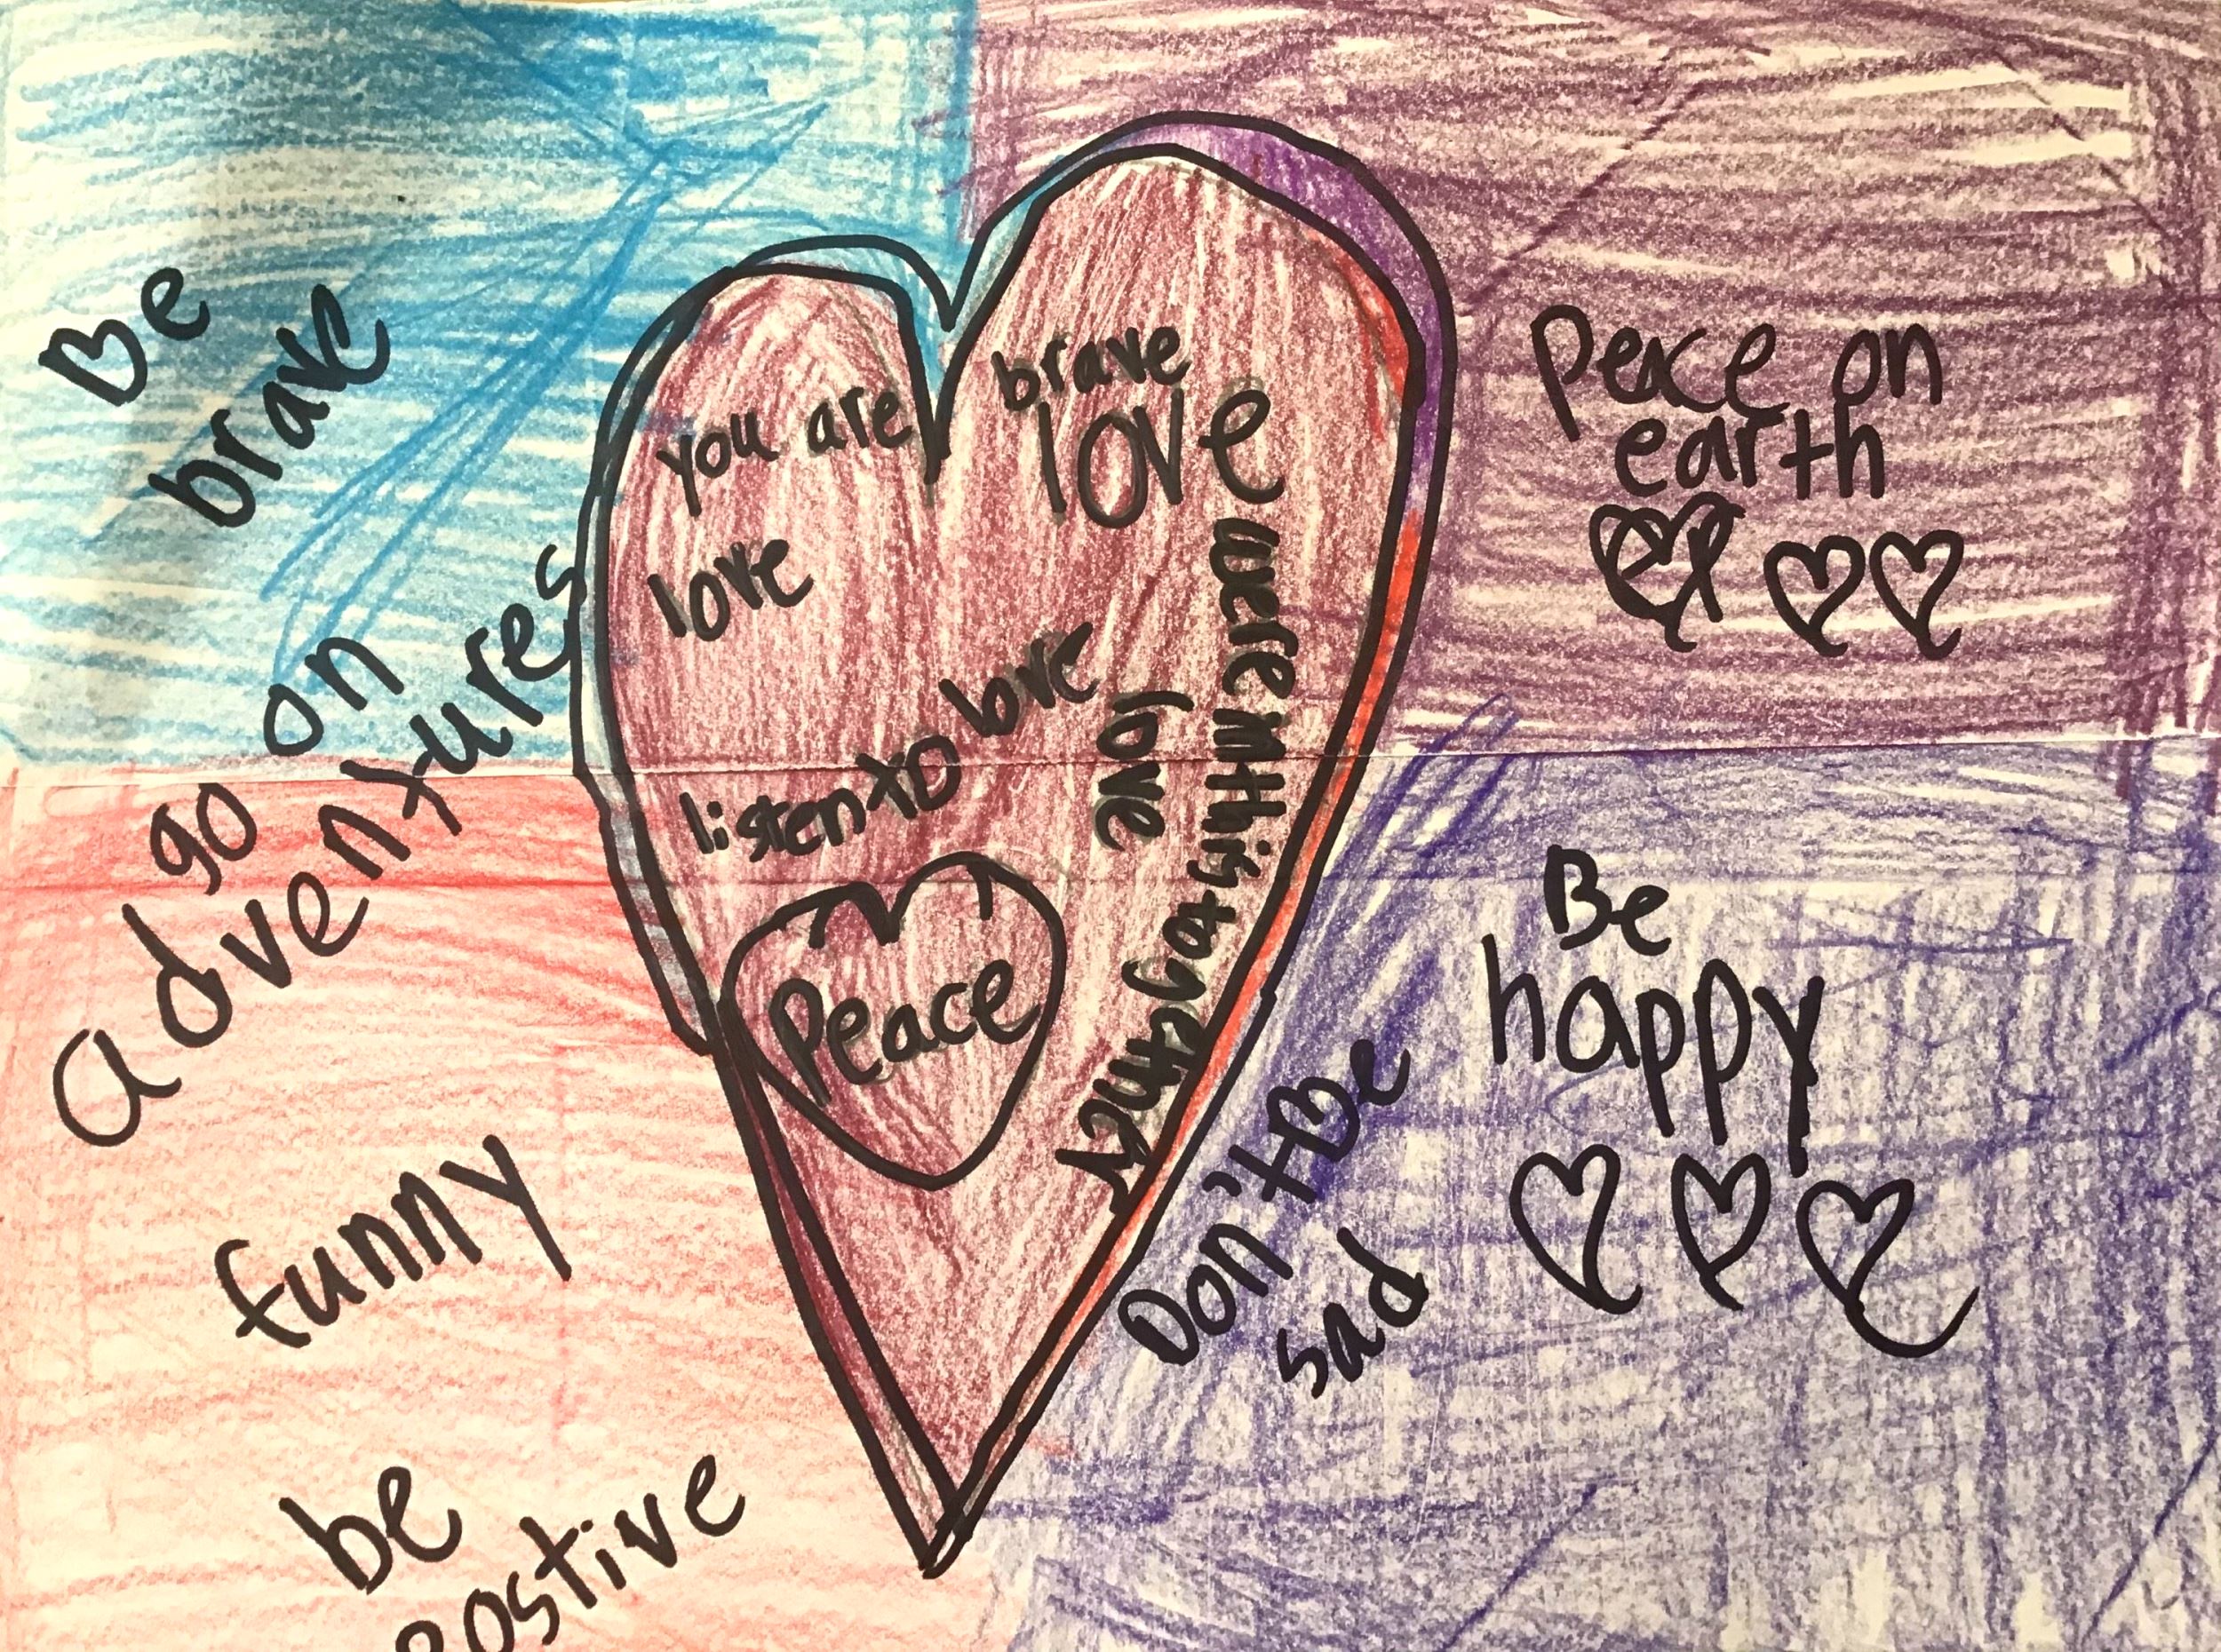 Be
brave
go on
adventures
funny
be
postive
you are
brave
love
love
listen to love
love
were in this to gether
Peace
Peace on
earth
Be
happy
Don,t Be
sad